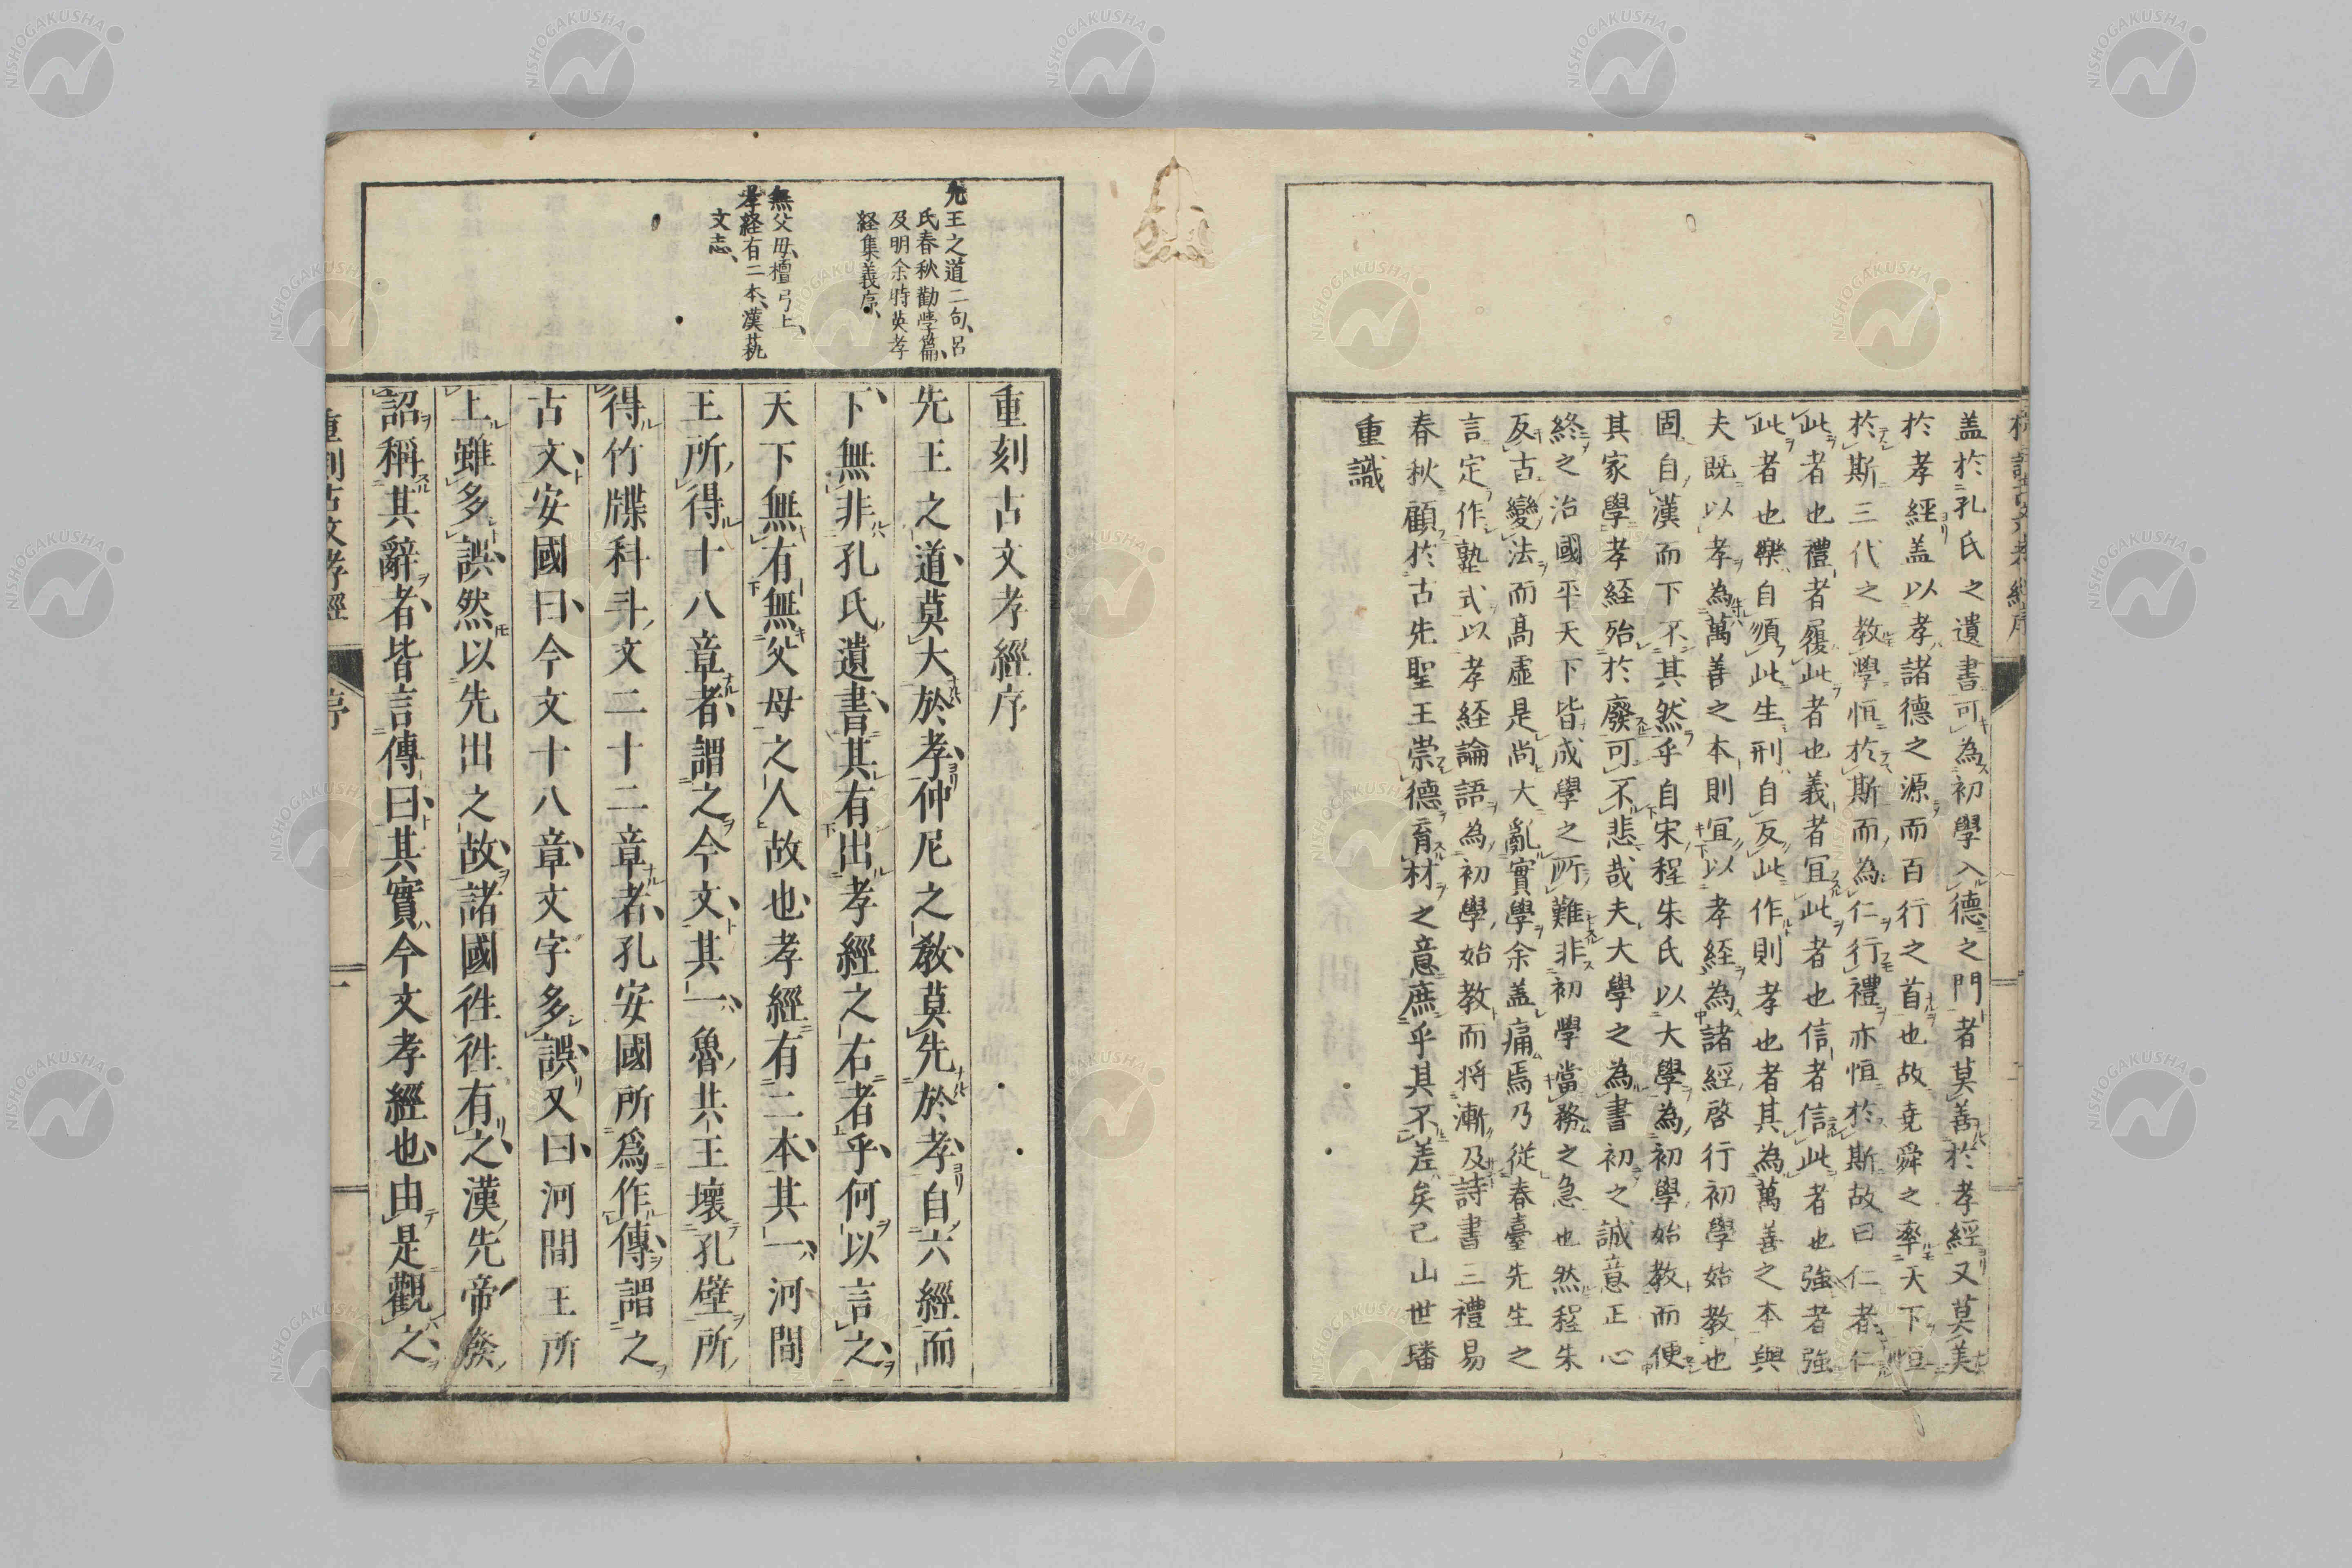 盖於孔氏之遺書可為初學入德之門者莫善於孝經又莫美
於孝經盖以孝諸德之源而百行之首也故堯舜之率天下恒
於斯三代之教學恒於斯而為仁行禮亦恒於斯故曰仁者仁
此者也禮者履此者也義者宜此者也信者信此者也強者強
此者也樂自順此生刑自反此作則孝也者其為萬善之本與
夫既以孝為萬善之本則宜以孝経為諸經啓行初學始教也
固自漢而下不其然乎自宋程朱氏以大學為初學始教而便
其家學孝経殆於廢可不悲哉夫大學之為書初之誠意正心
終之治國平天下皆成學之所難非初學當務之急也然程朱
反古變法而高虛是尚大亂實學余盖痛焉乃從春臺先生之
言定作塾式以孝経論語為初學始教而将漸及詩書三禮易
春秋顧於古先聖王崇德育材之意庶乎其不差矣己山世璠
重識
先王之道二句、呂
氏春秋勸學篇、
及明余時英孝
経集義序、
無父母、檀弓上、
孝経有二本、漢藝
文志、
重刻古文孝經序
先王之道莫大於孝仲尼之教莫先於孝自六經而
下無非孔氏遺書其有出孝經之右者乎何以言之
天下無有無父母之人故也孝經有二本其一河間
王所得十八章者謂之今文其一魯共王壞孔壁所
得竹牒科斗文二十二章者孔安國所爲作傳謂之
古文安國曰今文十八章文字多誤又曰河間王所
上雖多誤然以先出之故諸國徃徃有之漢先帝發
詔稱其辭者皆言傳曰其實今文孝經也由是觀之
重刻古文孝經
序
一